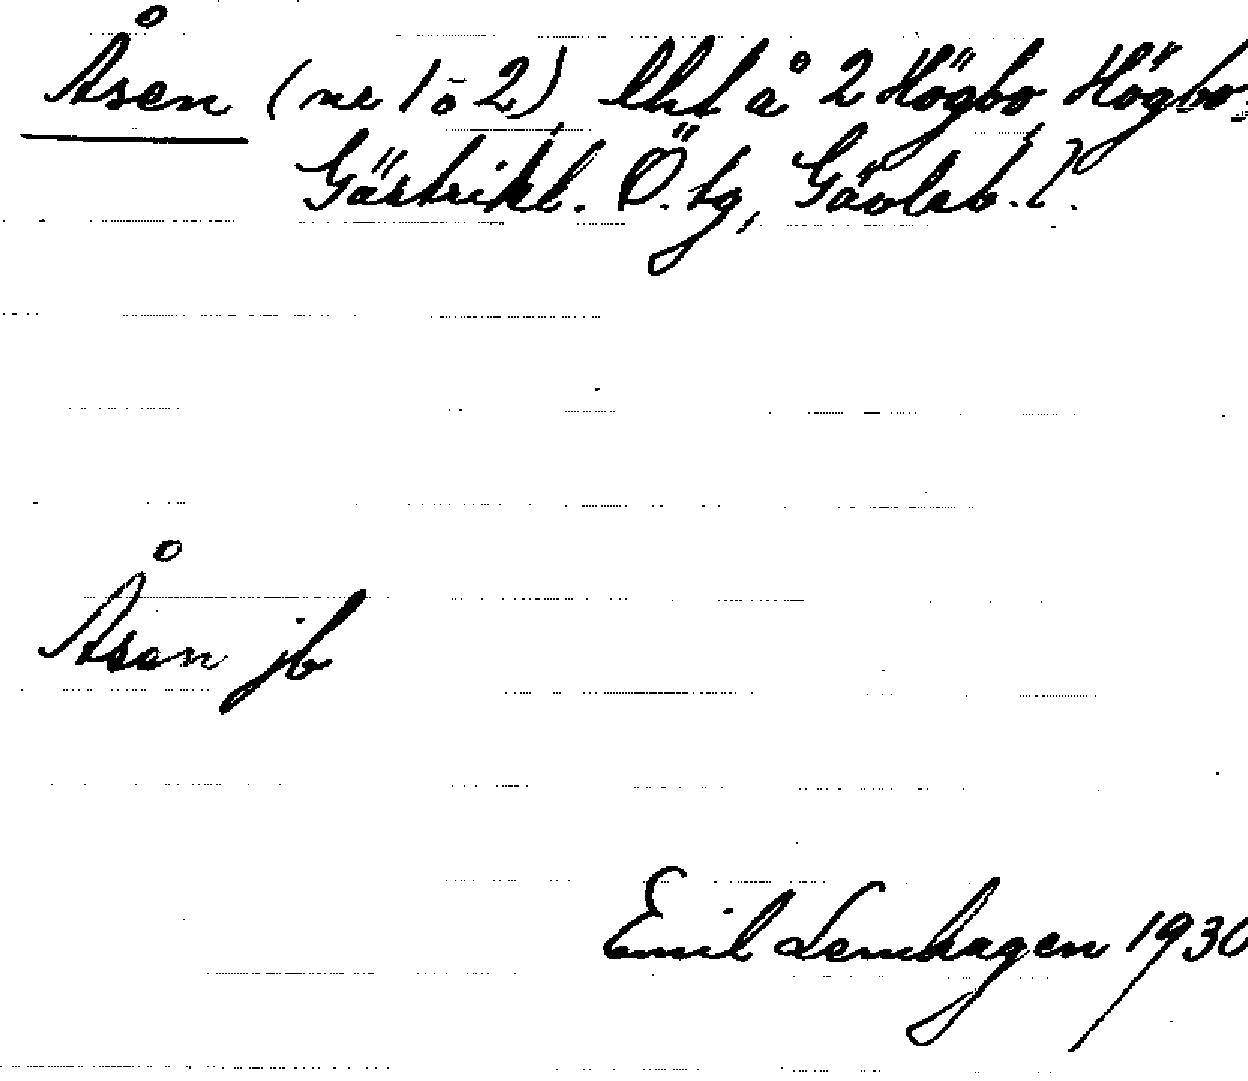 Åsen (nr 1 o 2) lht å 2 Högbo Högbo
Gästrikl. Ö. tg, Gävleb. l.
Åsen jb
Emil Lenhagen 1930